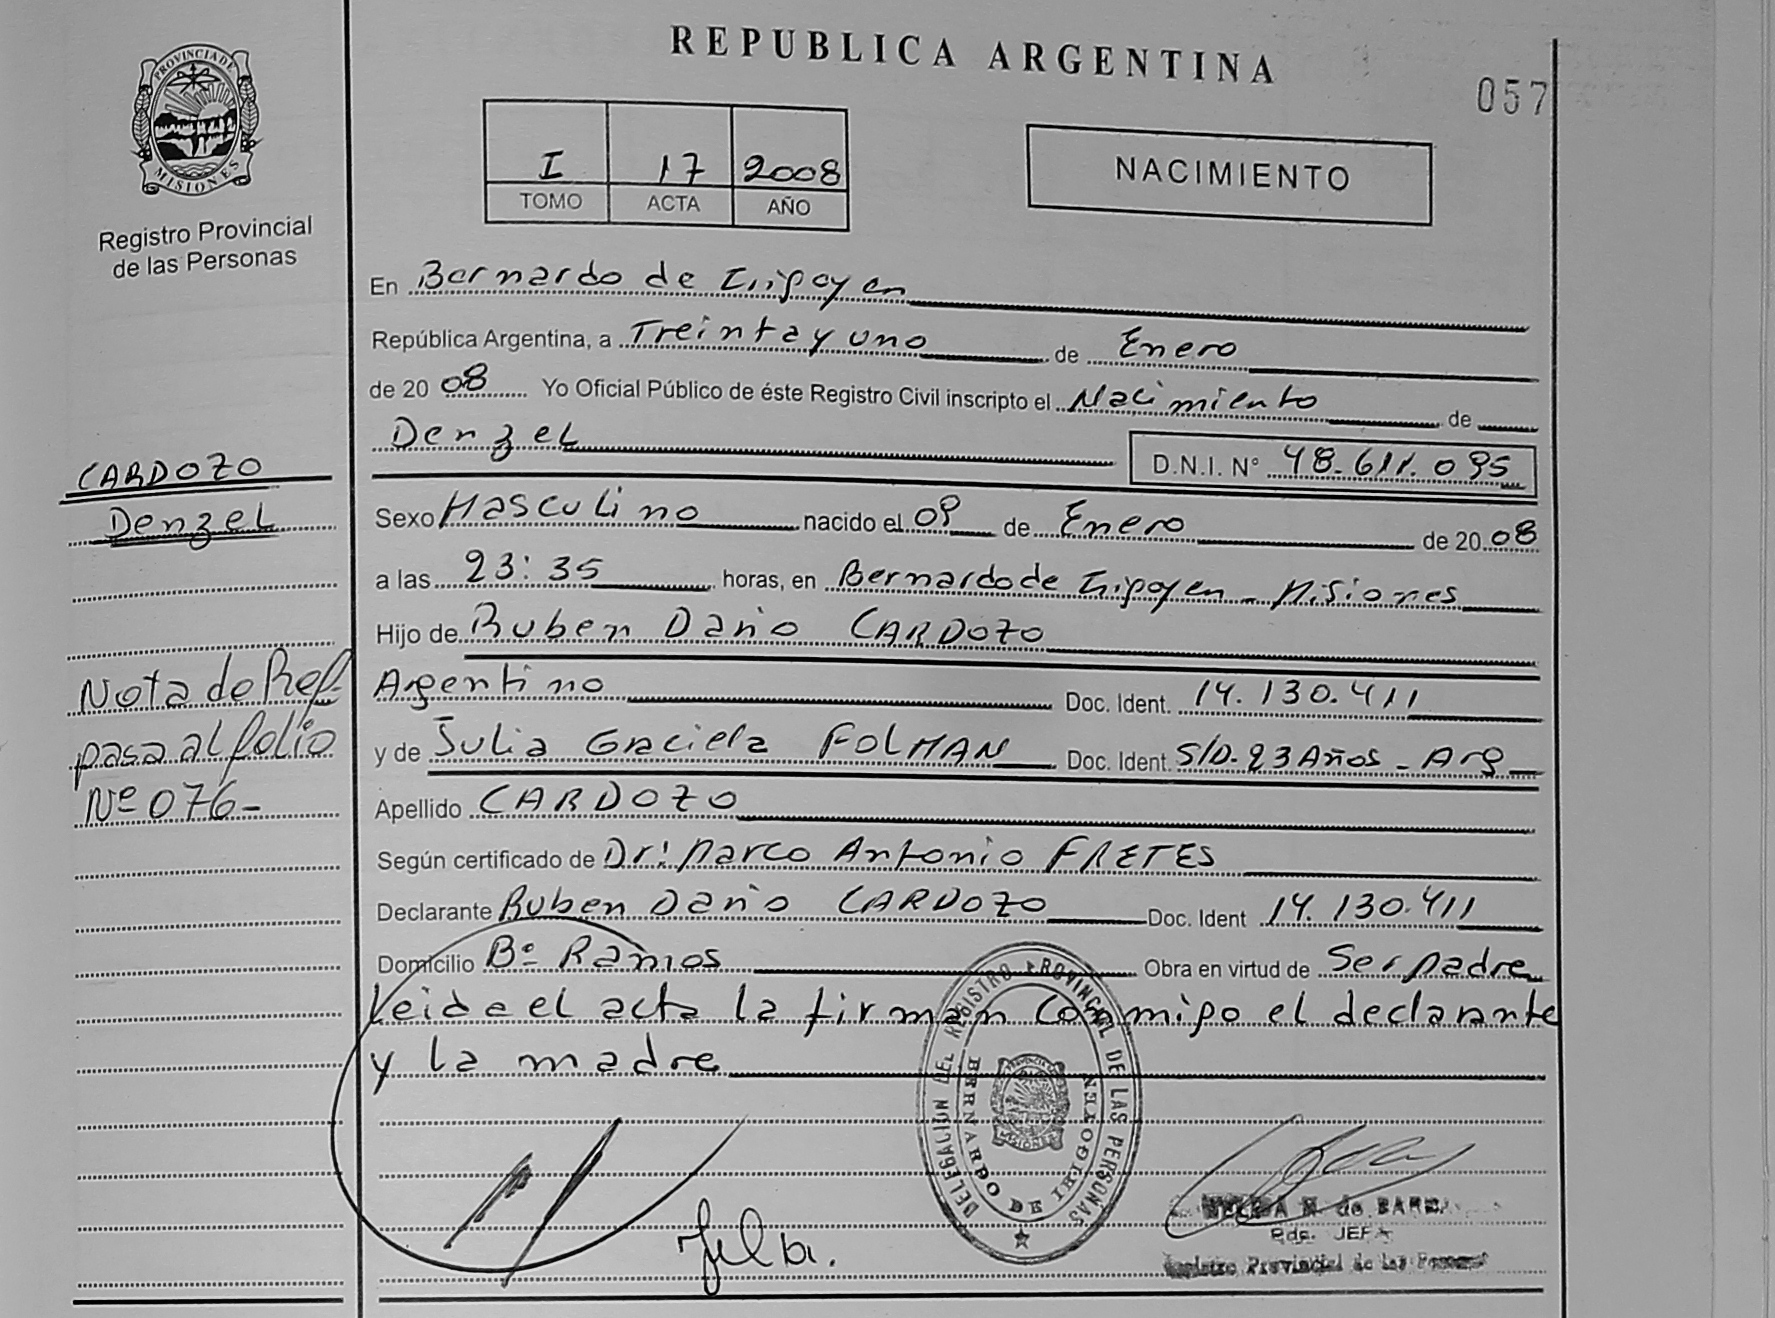 REPUBLICA ARGENTINA
057
PROVINCIA DE MISIONES
Registro Provincial
de las Personas
I 17 2008
TOMO ACTA AÑO
NACIMIENTO
En Bernardo de Irigoyen
República Argentina, a Treinta y uno de Enero
de 20 08 Yo Oficial Público de éste Registro Civil inscripto el Nacimiento de
Denzel D.N.I. N° 48.611.095
CARDOZO
Denzel
Sexo Masculino nacido el 09 de Enero de 20 08
a las 23:35 horas, en Bernardo de Irigoyen - Misiones
Hijo de Ruben Dario CARDOZO
Argentino Doc. Ident. 14.130.411
y de Julia Graciela FOLMAN Doc. Ident. S/D. 23 Años - Arg
Nota de Ref.
pasa al folio
Nº 076-
Apellido CARDOZO
Según certificado de Dr: Marco Antonio FRETES
Declarante Ruben Dario CARDOZO Doc. Ident 14.130.411
Domicilio Bº Ramos Obra en virtud de Ser padre
Leida el acta la firman conmigo el declarante
y la madre
DELEGACION DEL REGISTRO PROVINCIAL DE LAS PERSONAS
BERNARDO DE IRIGOYEN
MISIONES
de
JEFA
Registro Provincial de las Personas